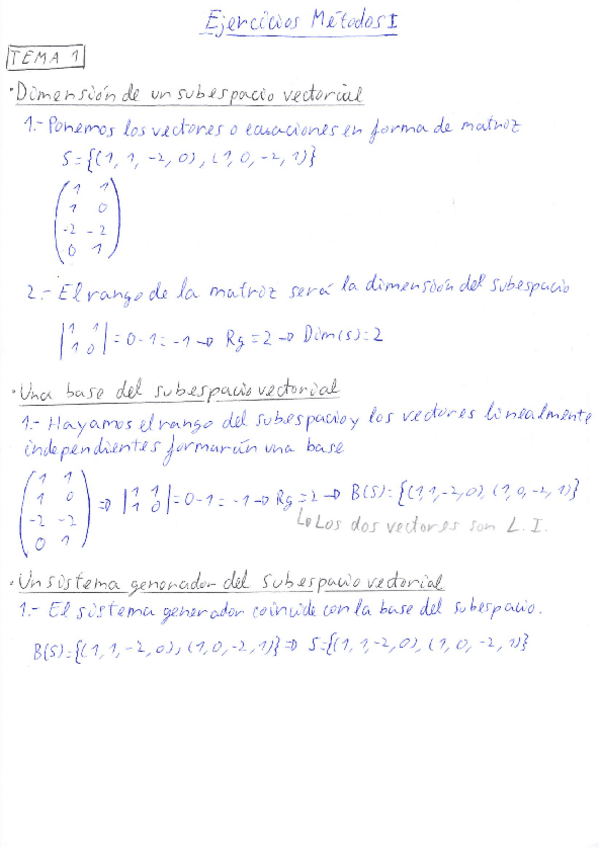 Ejercicios Métodos I
TEMA 1
·Dimensión de un subespacio vectorial
1.- Ponemos los vectores o ecuaciones en forma de matriz
S={(1, 1, -2, 0), (1, 0, -2, 1)}
1 1
1 0
-2 -2
0 1
2.- El rango de la matriz será la dimensión del subespacio
|1 1|
|1 0| = 0-1 = -1 → Rg = 2 → Dim(S)=2
·Una base del subespacio vectorial
1.- Hayamos el rango del subespacio y los vectores linealmente
independientes formarán una base
1 1
1 0
-2 -2
0 1
⇒ |1 1|
|1 0| = 0-1 = -1 → Rg = 2 → B(S)={(1,1,-2,0), (1,0,-2,1)}
↳ Los dos vectores son L.I.
·Un sistema generador del subespacio vectorial
1.- El sistema generador coincide con la base del subespacio.
B(S)={(1,1,-2,0), (1,0,-2,1)} ⇒ S={(1,1,-2,0), (1,0,-2,1)}